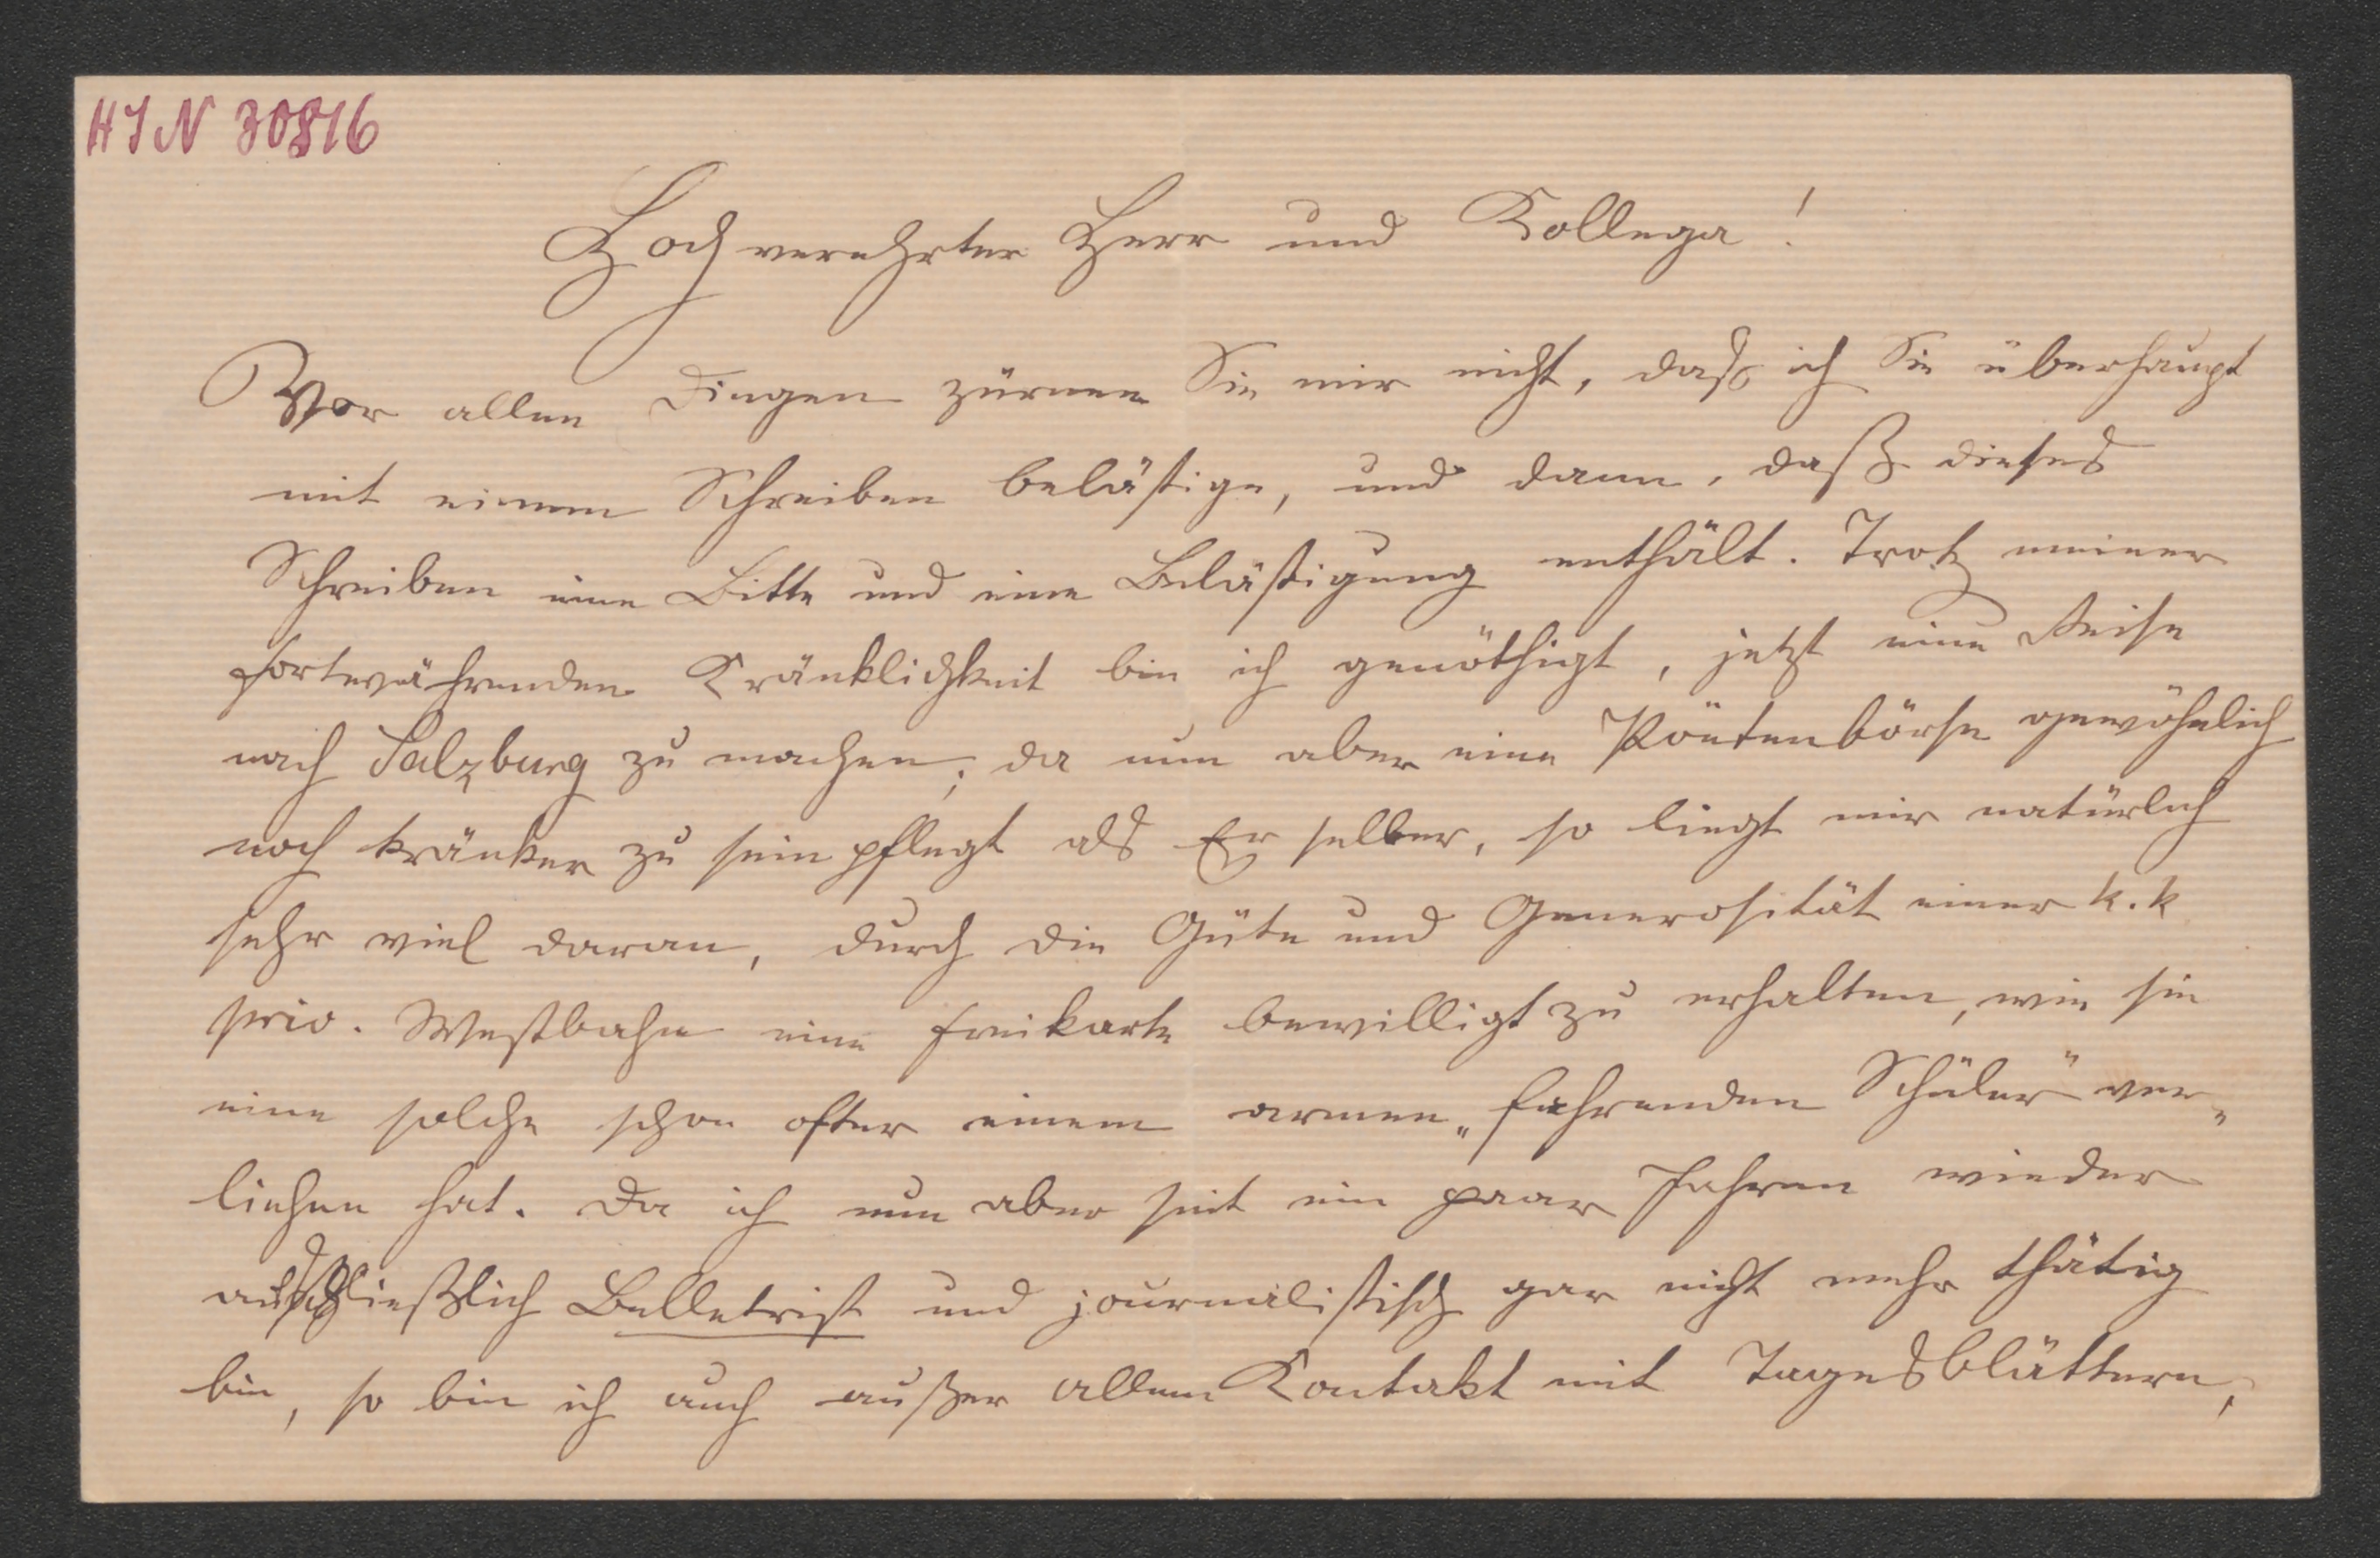 HIN 30816
Hochverehrter Herr und Kollega!
Vor allen Dingen zürnen Sie mir nicht, dass ich Sie überhaupt
mit einem Schreiben belästige, und dann, daß dieses
Schreiben eine Bitte und eine Belästigung enthält. Trotz meiner
fortwährenden Kränklichkeit bin ich genöthigt, jetzt eine Reise
nach Salzburg zu machen; da nun aber eine Poëtenbörse gewöhnlich
noch kränker zu sein pflegt als Er selber, so liegt mir natürlich
sehr viel daran, durch die Güte und Generosität einer k. k
priv. Westbahn eine Freikarte bewilligt zu erhalten, wie sie
eine solche schon öfter einem armen „fahrenden Schüler" ver„
liehen hat. Da ich nun aber seit ein paar Jahren wieder
ausschließlich Belletrist und journalistisch gar nicht mehr thätig
bin, so bin ich auch außer allem Kontakt mit Tagesblättern,